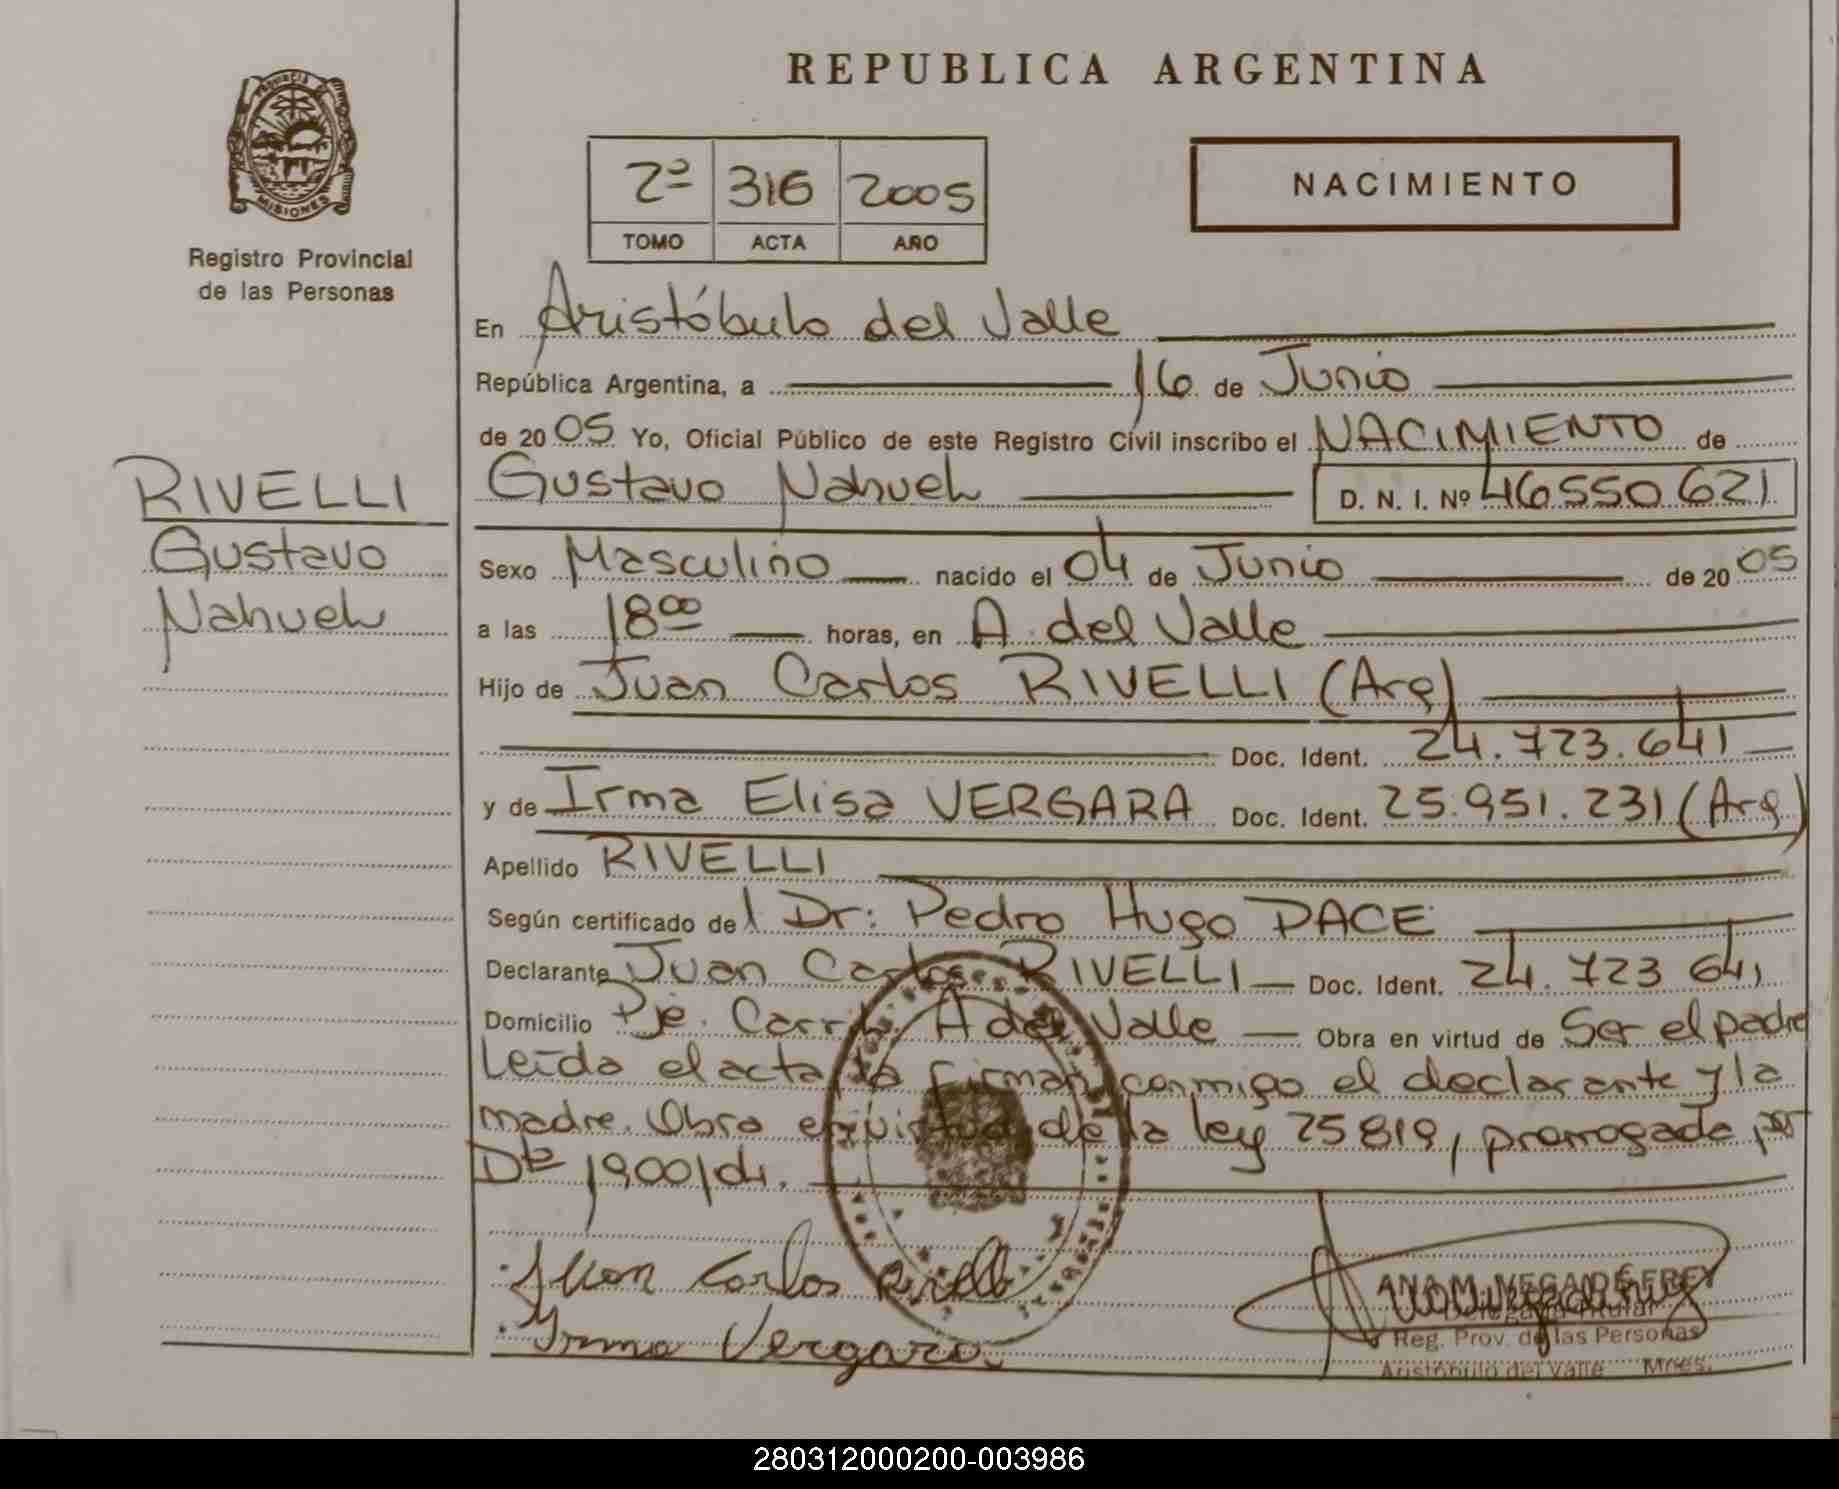 REPUBLICA ARGENTINA
PROVINCIA
MISIONES
Registro Provincial
de las Personas
2º 316 2005
TOMO ACTA AÑO
NACIMIENTO
En Aristóbulo del Valle
República Argentina, a 16 de Junio
de 2005 Yo, Oficial Público de este Registro Civil inscribo el NACIMIENTO de
Gustavo Nahuel D. N. I. Nº 46550.621
RIVELLI
Gustavo
Nahuel
Sexo Masculino nacido el 04 de Junio de 2005
a las 18 00 horas, en A. del Valle
Hijo de Juan Carlos RIVELLI (Arg)
Doc. Ident. 24.723.641
y de Irma Elisa VERGARA Doc. Ident. 25.951.231 (Arg)
Apellido RIVELLI
Según certificado del Dr: Pedro Hugo PACE
Declarante Juan Carlos RIVELLI Doc. Ident. 24.723 641
Domicilio Pje. A del Valle Obra en virtud de Ser el padre
Leída el acta la firman conmigo el declarante y la
madre. Obra en virtud de la ley 25819, prorrogada por
Dto 1900/04.
Juan Carlos Rivelli
Irma Vergara
ANA M. VEGA DE FREY
Delegada Titular
Reg. Prov. de las Personas
Aristóbulo del Valle Mnes.
280312000200-003986